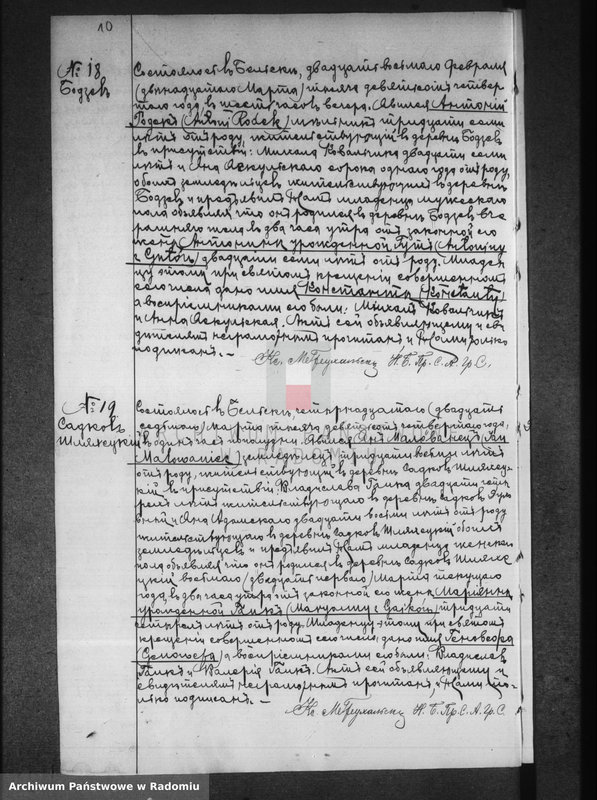 10
№ 18
Бодзев
Состоялось въ Бельске, двадцать восьмаго Февраля
(двенадцатаго Марта) тысяча девятьсотъ четвер-
таго года въ шесть часовъ вечера. Явился Антоній
Родекъ (Antoni Rodek) тридцати семи
летъ отъ роду, жительствующій въ деревне Бодзев
въ присутствіи: Михаила Ковальчика двадцати семи
летъ и Яна сорока одного года отъ роду,
обоихъ земледельцевъ жительствующихъ въ деревне
Бодзев и предъявилъ Намъ младенца мужескаго
пола объявляя что онъ родился въ деревне Бодзев вче-
рашняго числа въ два часа утра отъ законной его
жены Антонины урожденной (Antoniny
z) двадцати семи летъ отъ роду. Младен-
цу этому при святомъ крещеніи совершенномъ
сего числа дано имя Константій (Konstanty)
а воспріемниками его были: Михаилъ Ковальчикъ
и Анна. Актъ сей объявляющему и сви-
детелямъ неграмотнымъ прочитанъ и Нами только
подписанъ. —
Кс. Н. Б. Пр. С. А. Гр. С.
№ 19
Садковъ
Шляхецкій
Состоялось въ Бельске, четырнадцатаго (двадцать
седьмаго) Марта тысяча девятьсотъ четвертаго года,
въ одинъ часъ пополудни. Явился Янъ Малованецъ (Jan
Malowaniec) земледелецъ тридцати восьми летъ
отъ роду, жительствующій въ деревне Садковъ Шляхец-
кій въ присутствіи: Владислава Галка двадцати четы-
рехъ летъ жительствующаго въ деревне Садковъ
и Яна Адамскаго двадцати восьми летъ отъ роду
жительствующаго въ деревне Садковъ Шляхецкій обоихъ
земледельцевъ и предъявилъ Намъ младенца женскаго
пола объявляя что онъ родился въ деревне Садковъ Шляхе-
цкій восьмаго (двадцать перваго) Марта текущаго
года, въ два часа утра отъ законной его жены Маріанны
урожденной Галка (Maryanny z) тридцати
четырехъ летъ отъ роду. Младенцу этому при святомъ
крещеніи совершенномъ сего числа, дано имя Геновефа
(Genowefa) а воспріемниками его были: Владиславъ
Галка и Валерія Галка. Актъ сей объявляющему и
свидетелямъ неграмотнымъ прочитанъ и Нами то-
лько подписанъ. —
Кс. Н. Б. Пр. С. А. Гр. С.
Archiwum Państwowe w Radomiu